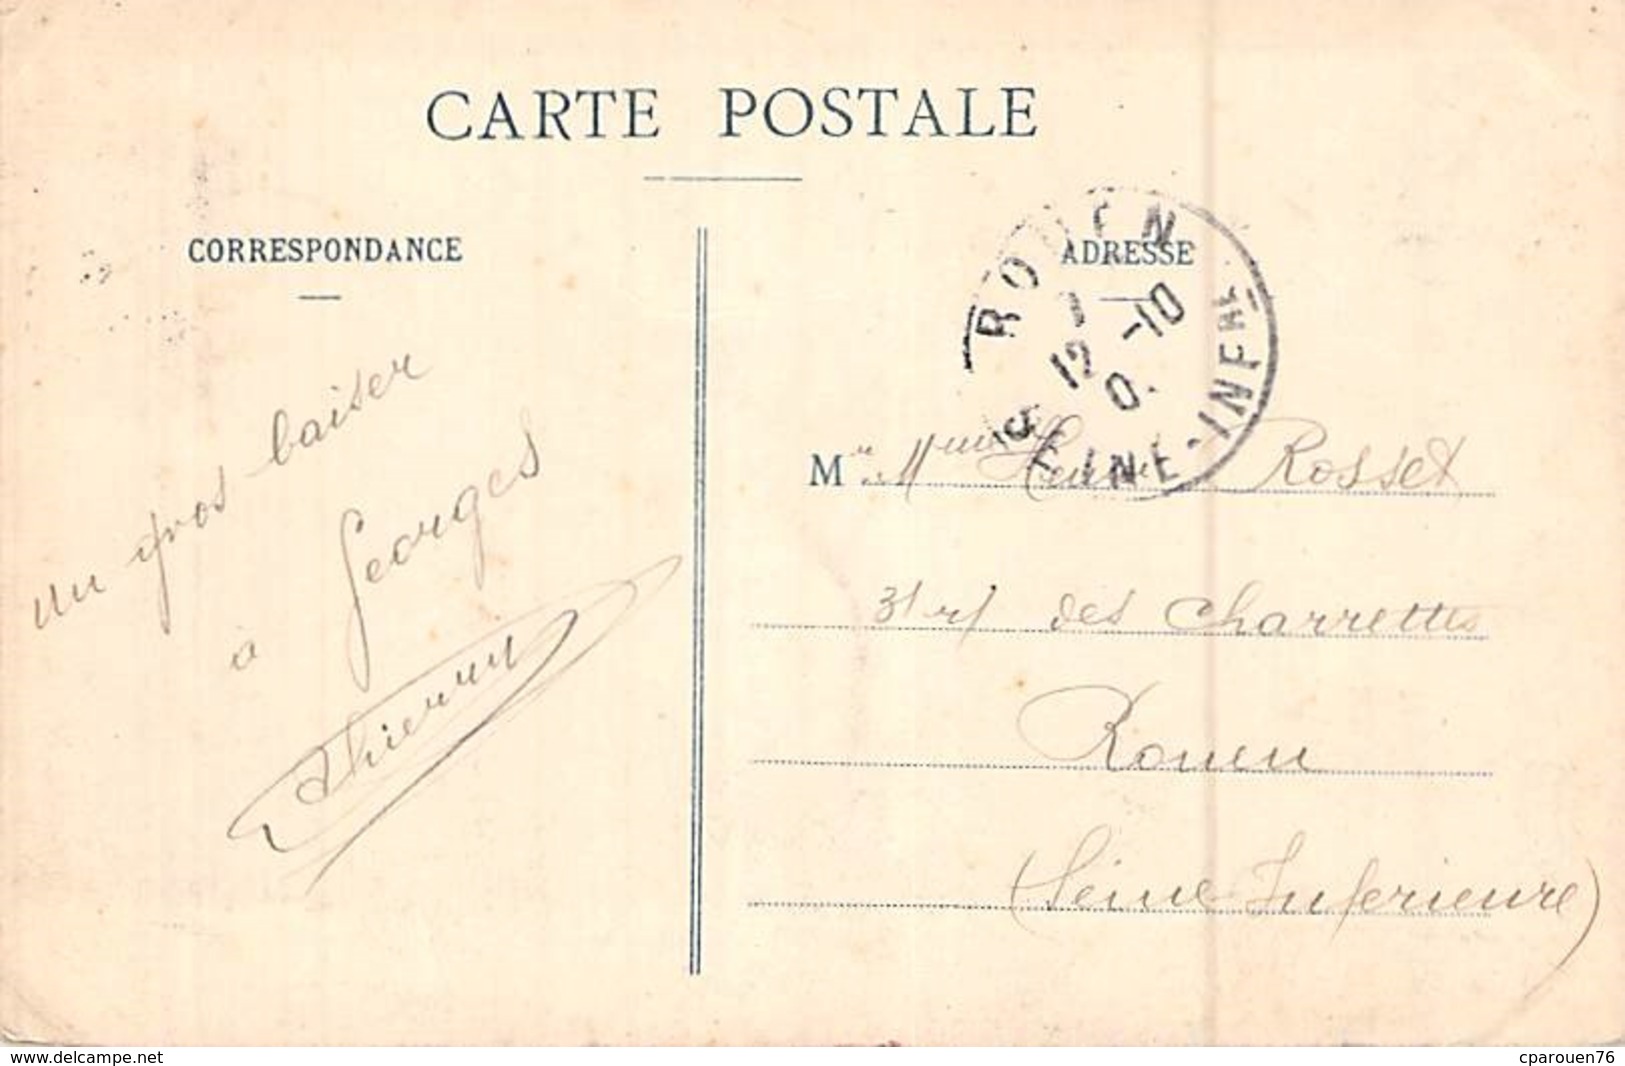 CARTE POSTALE
CORRESPONDANCE
ADRESSE
ROUEN
12 - 10
SEINE-INFRE
un gros baiser
à Georges
Thierry
Mr Mme Henri Rosset
31 r/ des Charrettes
Rouen
(Seine-Inferieure)
www.delcampe.net
cparouen76